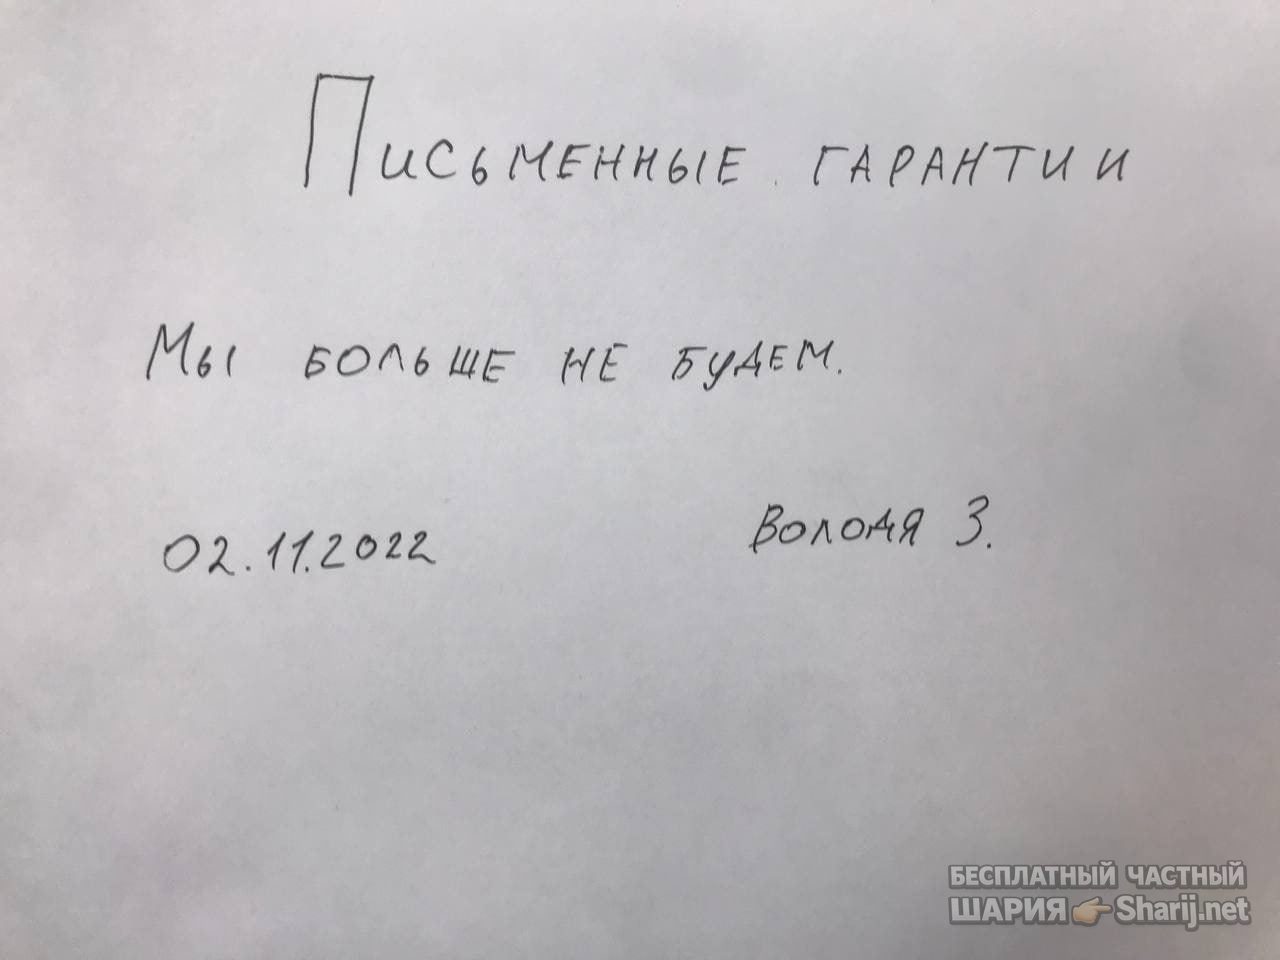 Письменные гарантии
Мы больше не будем.
02.11.2022 Володя З.
БЕСПЛАТНЫЙ ЧАСТНЫЙ
ШАРИЯ👉Sharij.net